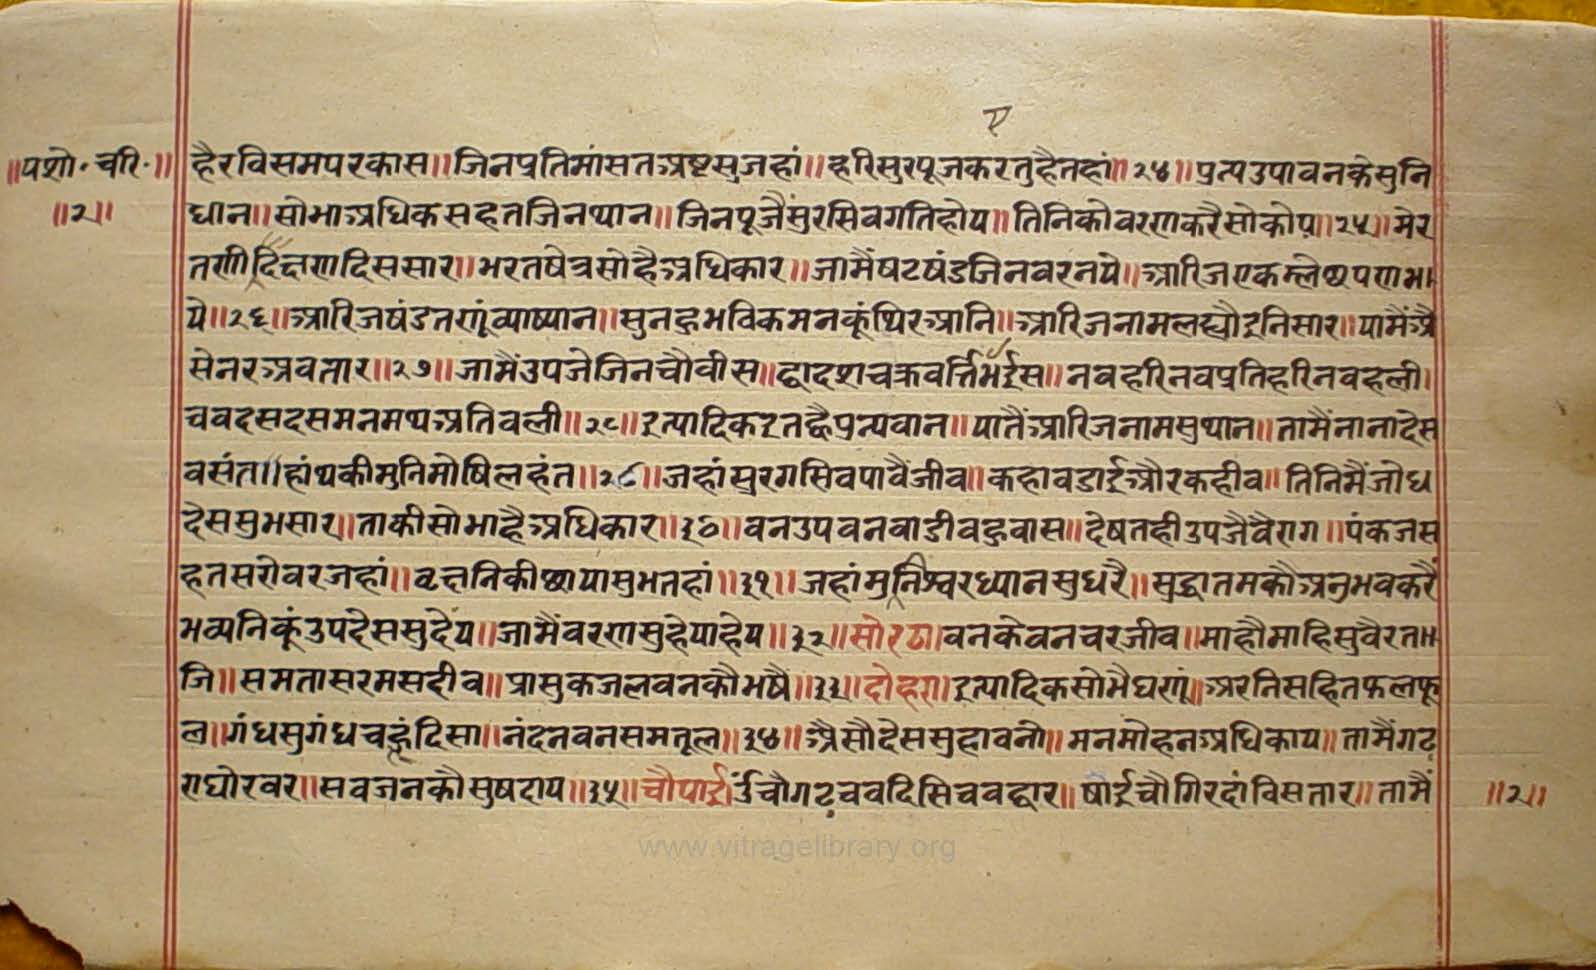 ए
॥यशो॰चरि॰॥ है रवि सम परकास॥ जिन प्रतिमां सत अष्ट सु जहां॥ हरि सुर पूज करतु है तहां॥२४॥ पुन्य उपावन के सु नि
॥२॥ धान॥ सोभा अधिक सहत जिन थान॥ जिन पूजैं सुर सिव गति होय॥ तिनि को वरणण करै सो कोय॥२५॥ मेर
तणी दछिण दिस सार॥ भरत षेत्र सोहै अधिकार॥ जामैं षट षंड जिनवर नये॥ आरिज एक म्लेछ पण भ।
ये॥२६॥ आरिज षंड तणूं व्याष्यान॥ सुनहु भविक मन कूं थिर आनि॥ आरिज नाम लह्यौ इनि सार॥ यामैं अै
से नर अवतार॥२७॥ जामैं उपजे जिन चौवीस॥ द्वादश चक्रवर्त्ति भईस॥ नव हरि नव प्रतिहरि नव हली।
चवदस दस मनमथ अति वली॥२८॥ इत्यादिक इत ह्वै पुन्यवान॥ यातैं आरिज नाम सुथान॥ तामैं नाना देस
वसंत॥ हां थकी मुनि मोषि लहंत॥२९॥ जहां सुरग सिव पावैं जीव॥ कहा वडाई और कहीव॥ तिनि मैं जोध
देस सुभ सार॥ ताकी सोभा है अधिकार॥३०॥ वन उपवन वाडी वहु वास॥ देषत ही उपजै वैराग॥ पंकज स
हत सरोवर जहां॥ वृत्तनि की छाया सुभ तहां॥३१॥ जहां मुनिश्वर ध्यान सु धरै॥ सुद्धातम कौ अनुभव करैं
भव्यनि कूं उपदेस सु देय॥ जामैं वरणण सु हेयाहेय॥३२॥ सोरठा। वन के वनचर जीव॥ माहौ माहि सु वैर त॥
जि॥ समता सरम सदीव॥ प्रासुक जल वन कौ भषै॥३३॥ दोहरा। इत्यादिक सोभै घणूं॥ अरनि सहित फल फू
ल॥ गंध सुगंध चहूं दिसा॥ नंदन वन सम तूल॥३४॥ अैसौ देस सुहावनो॥ मन मोहन अधिकाय॥ तामैं गढ़
राघोर वर॥ सव जन कौ सुषदाय॥३५॥ चौपाई। उंचौ गढ़ चव दिसि चव द्वार॥ षाई चौगिरदां विसतार॥ तामैं
॥२॥
www.vitragelibrary.org